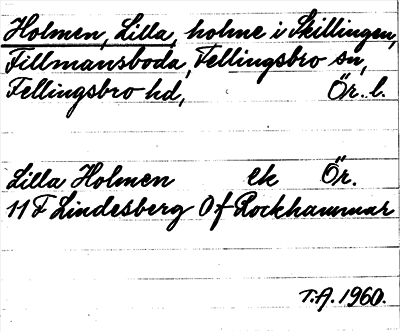 Holmen, Lilla, holme i Skillingen,
Fillmansboda, Fellingsbro sn,
Fellingsbro hd, Ör. l.
Lilla Holmen ek Ör.
11 F Lindesberg Of Rockhammar
T.A. 1960.